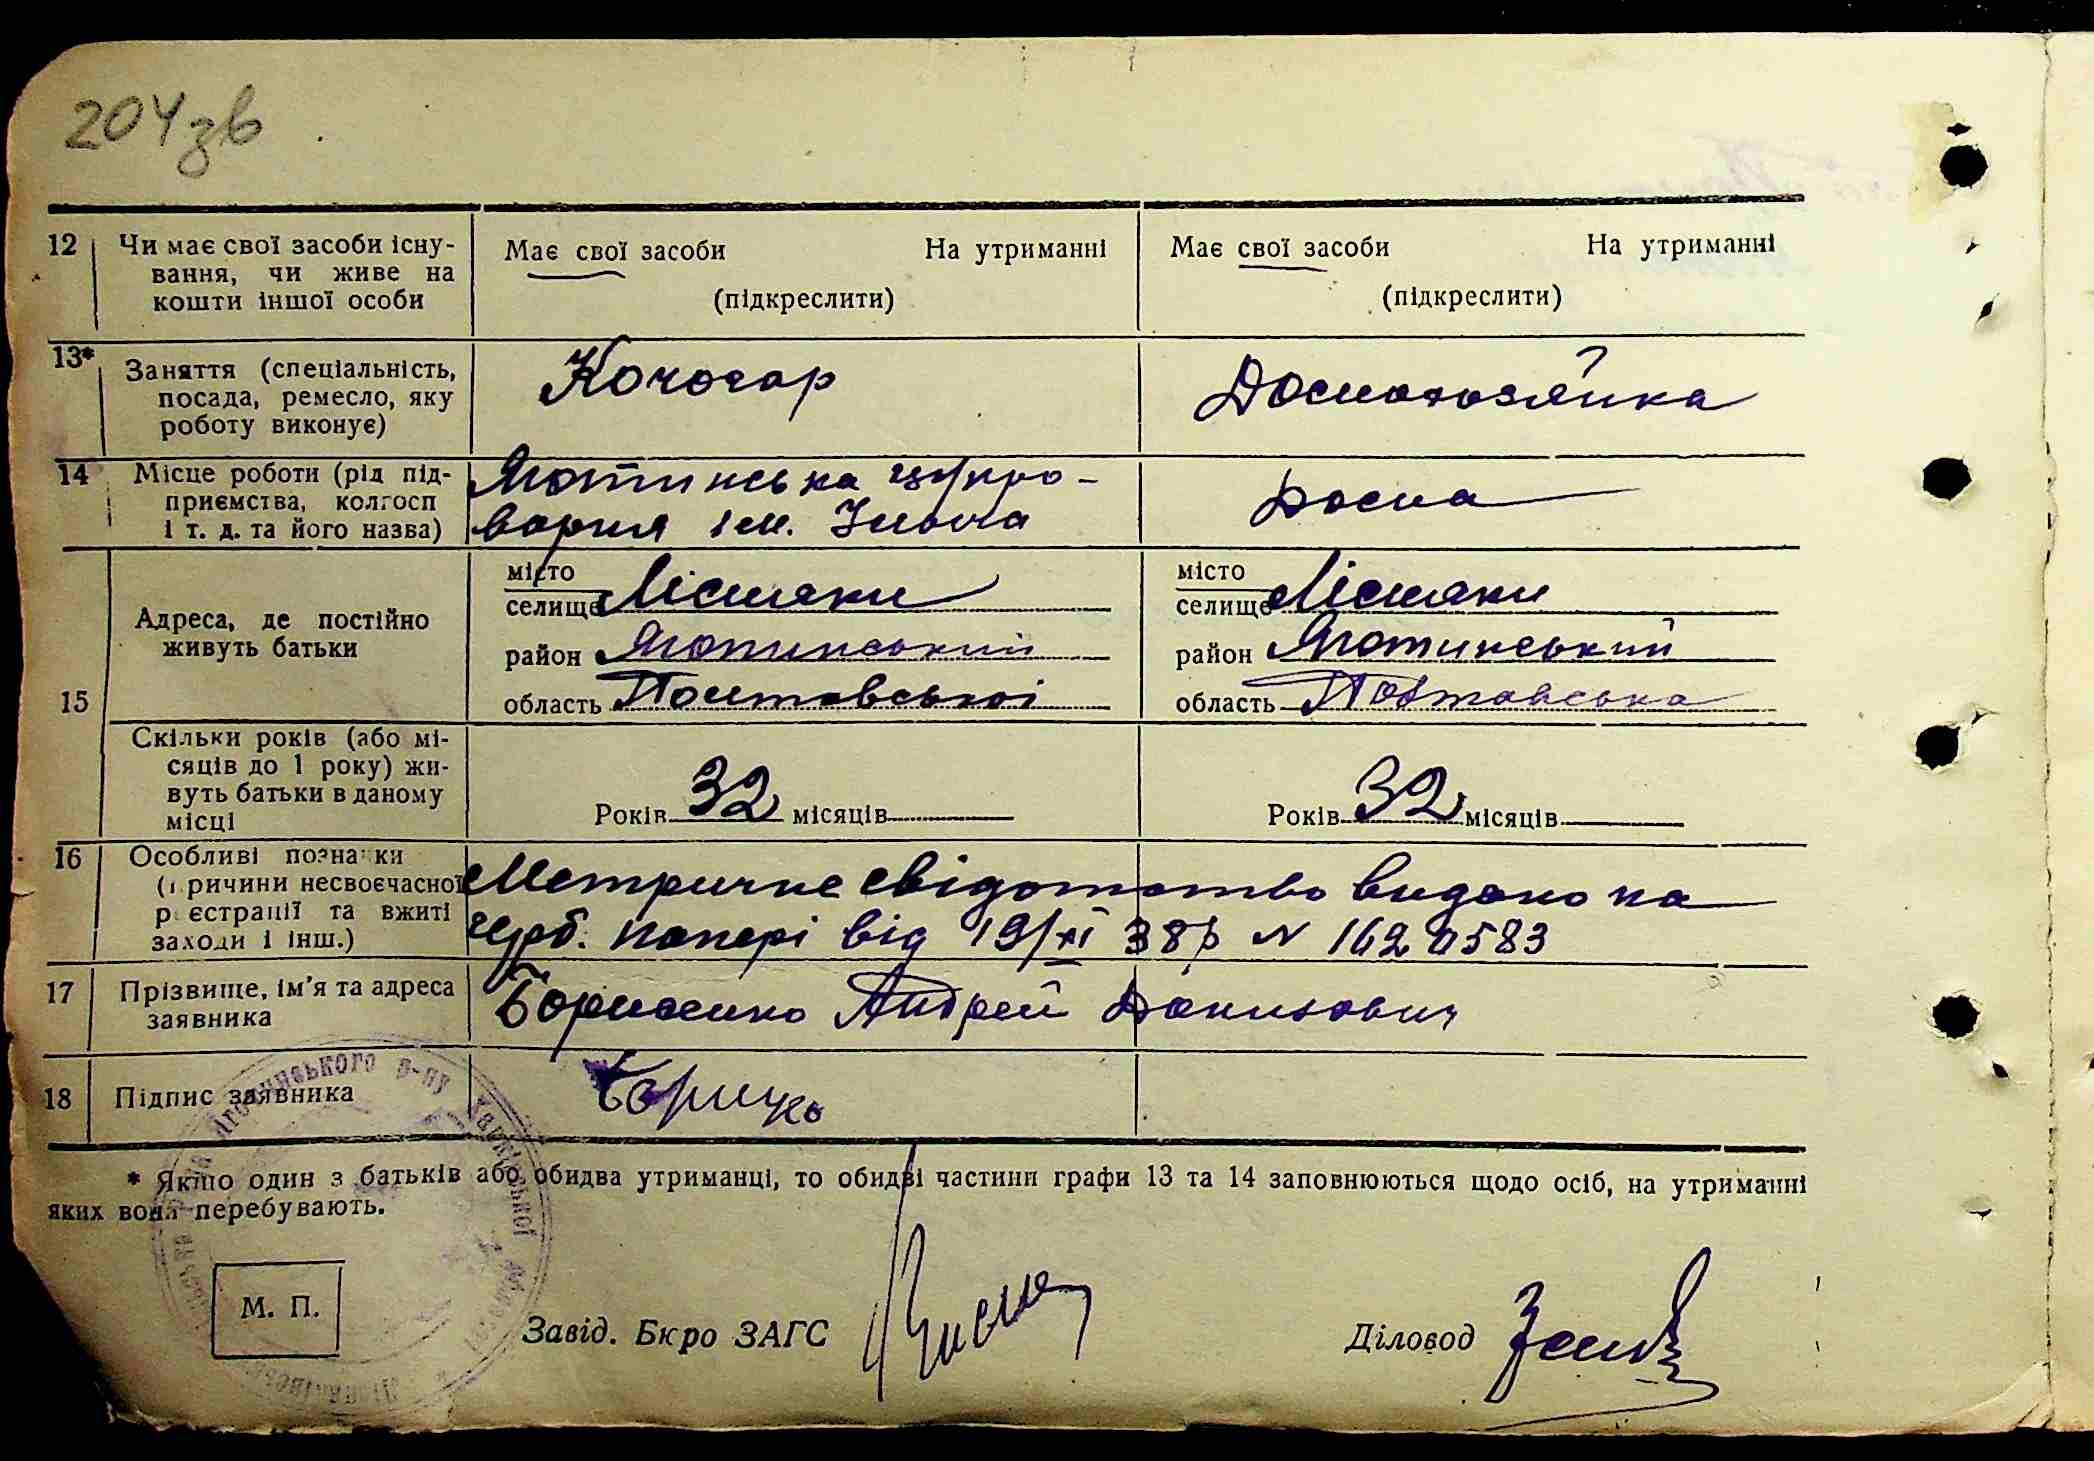 204зв
12 Чи має свої засоби існу-
вання, чи живе на
кошти іншої особи
Має свої засоби На утриманні
(підкреслити)
Має свої засоби На утриманні
(підкреслити)
13* Заняття (спеціальність,
посада, ремесло, яку
роботу виконує)
Кочогар
Домогозяйка
14 Місце роботи (рід під-
приємства, колгосп
і т. д. та його назва)
Яготинська цукро-
варня ім. Ілліча
Дома
15 Адреса, де постійно
живуть батьки
місто
селище Лісняки
район Яготинський
область Полтавської
місто
селище Лісняки
район Яготинський
область Полтавська
Скільки років (або мі-
сяців до 1 року) жи-
вуть батьки в даному
місці
Років 32 місяців
Років 32 місяців
16 Особливі познаки
(причини несвоєчасної
реєстрації та вжиті
заходи і інш.)
Метричне свідотство видано на
герб. папері від 19/XI 38р N 1620583
17 Прізвище, ім'я та адреса
заявника
Борисенко Андрей Денисович
18 Підпис заявника
* Якшо один з батьків або обидва утриманці, то обидві частини графи 13 та 14 заповнюються щодо осіб, на утриманні
яких вони перебувають.
М. П.
Завід. Бюро ЗАГС
Діловод
Яготинського р-ну Харківської